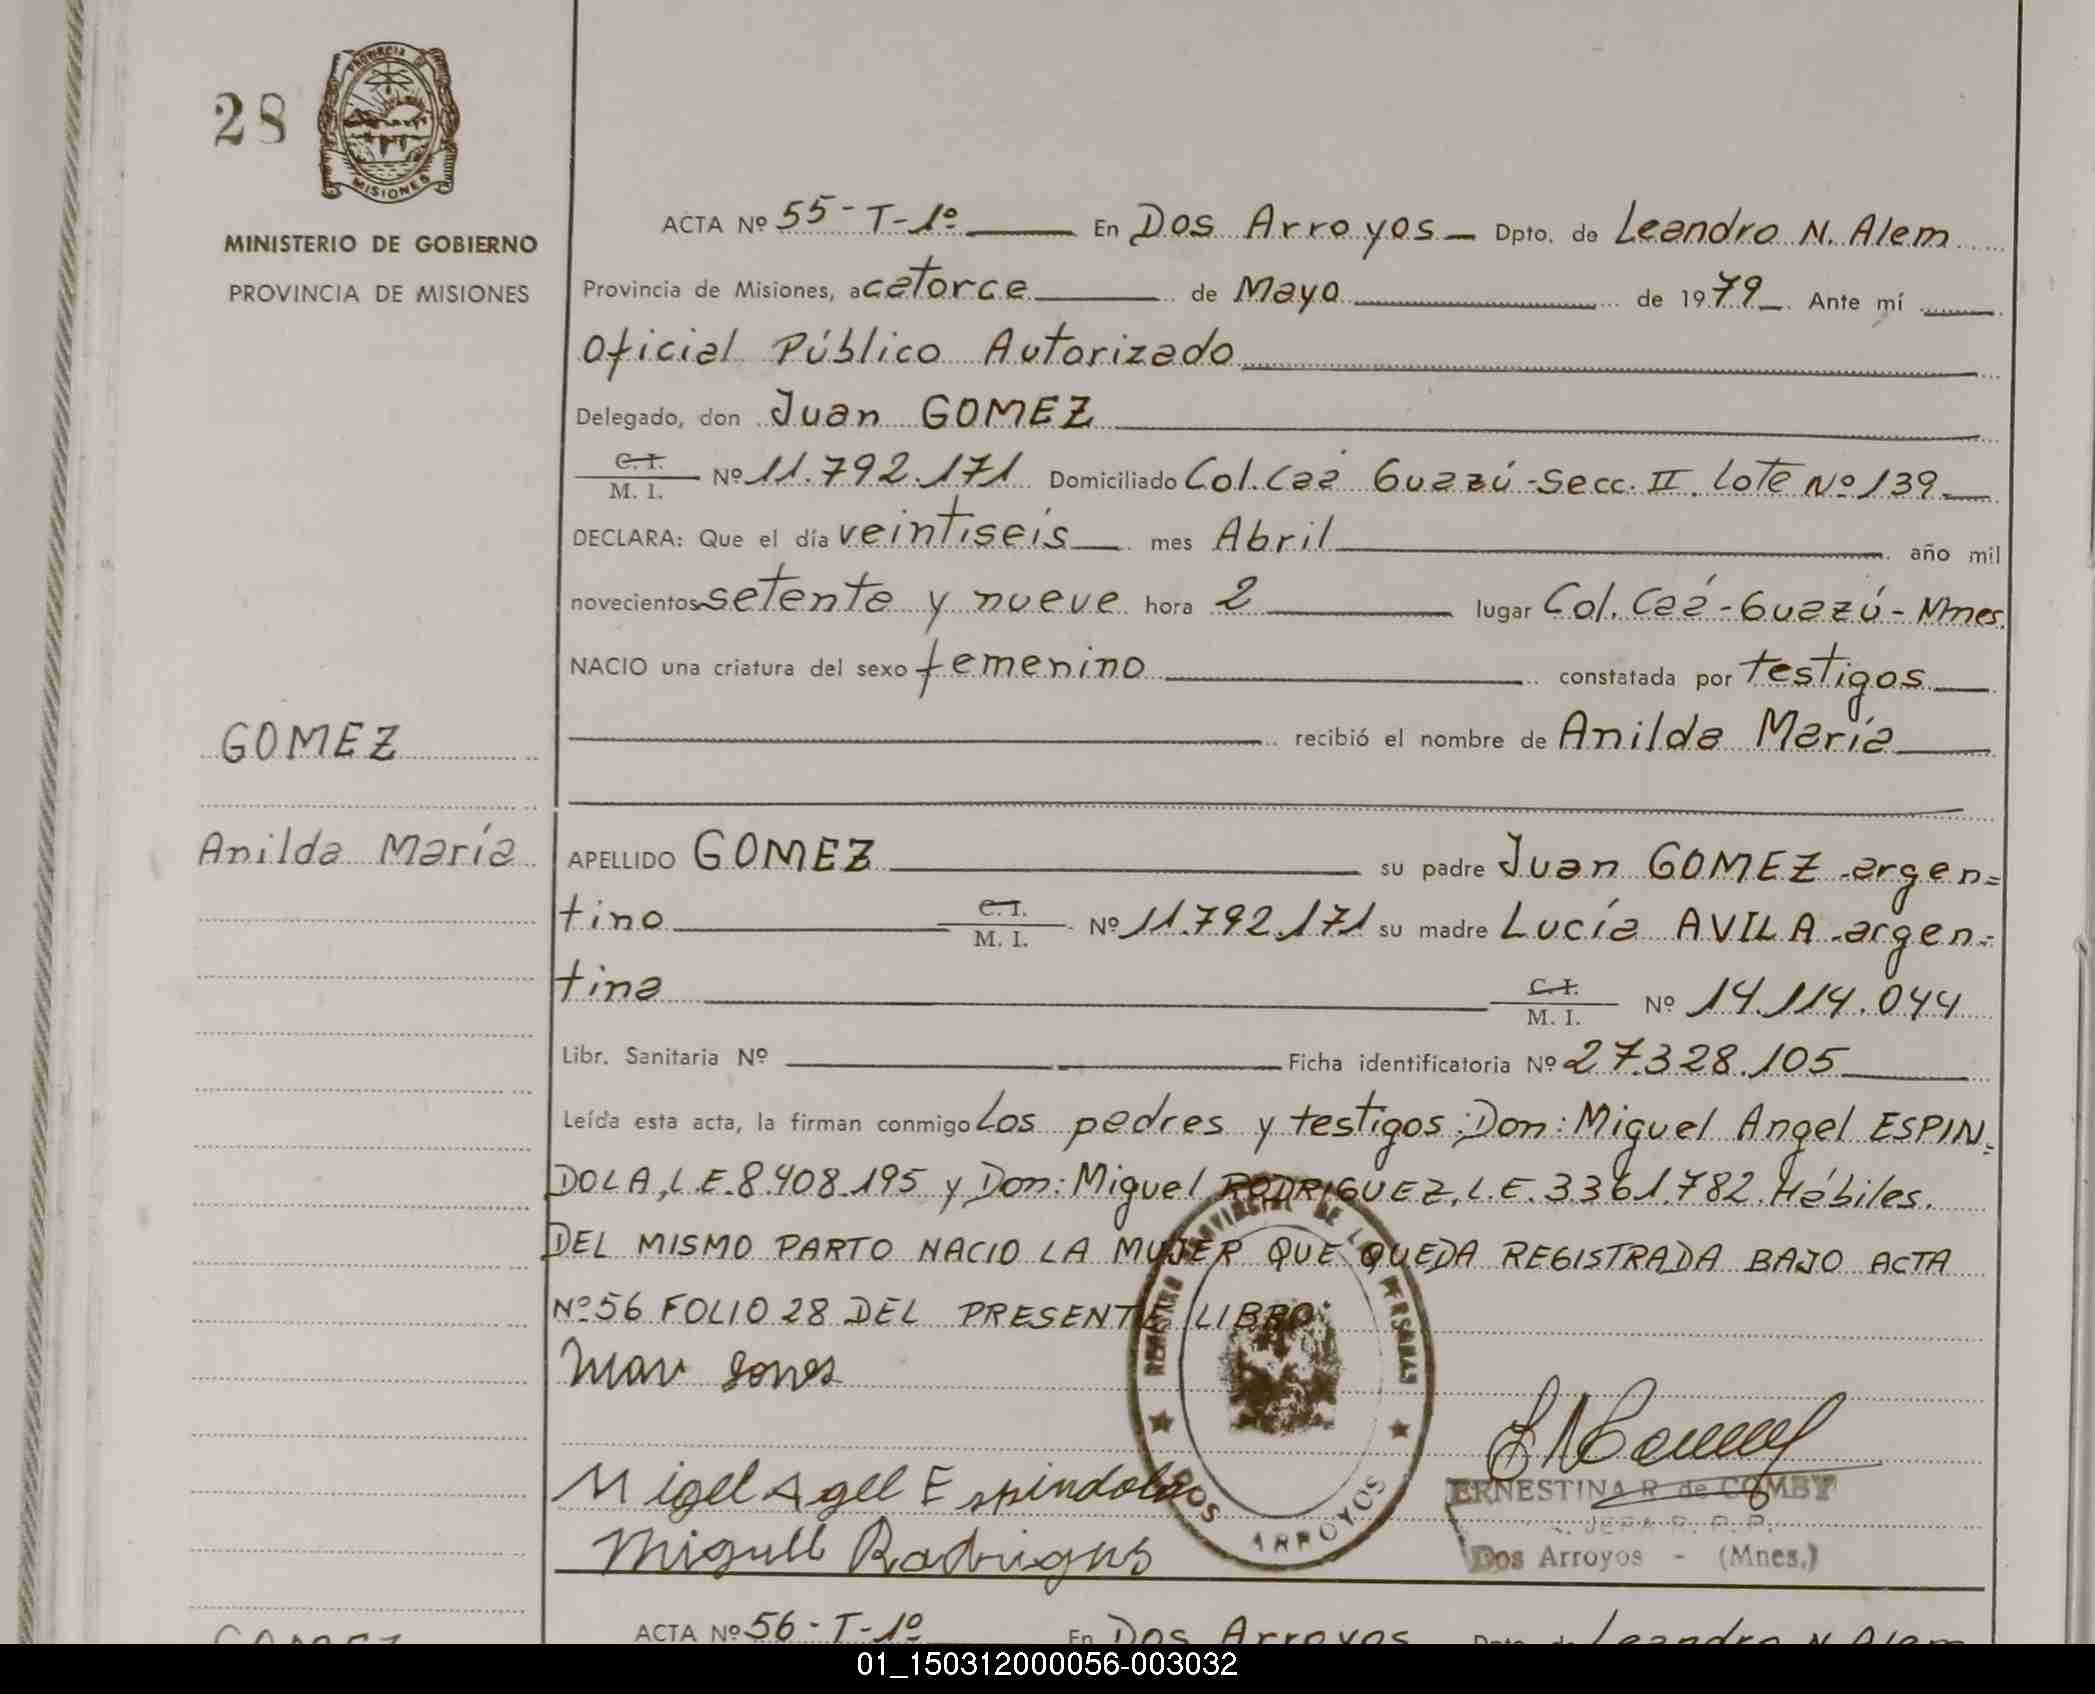 28
PROVINCIA DE
MISIONES
MINISTERIO DE GOBIERNO
PROVINCIA DE MISIONES
ACTA Nº 55-T-1º En Dos Arroyos Dpto. de Leandro N. Alem
Provincia de Misiones, a catorce de Mayo de 1979. Ante mí
Oficial Público Autorizado
Delegado, don Juan GOMEZ
C. I.
M. I. Nº 11.792.171 Domiciliado Col. Caá Guazú - Secc. II. Lote Nº 139
DECLARA: Que el día veintiseis mes Abril año mil
novecientos setenta y nueve hora 2 lugar Col. Caá-Guazú - Mnes.
NACIO una criatura del sexo femenino constatada por testigos
recibió el nombre de Anilda María
GOMEZ
Anilda María
APELLIDO GOMEZ su padre Juan GOMEZ -argen=
tino C. I. M. I. Nº 11.792.171 su madre Lucía AVILA -argen=
tina C. I. M. I. Nº 14.114.044
Libr. Sanitaria Nº Ficha identificatoria Nº 27.328.105
Leída esta acta, la firman conmigo Los padres y testigos: Don: Miguel Angel ESPIN=
DOLA, L.E. 8.408.195 y Don: Miguel RODRIGUEZ, L.E. 3.361.782. Hábiles.
DEL MISMO PARTO NACIO LA MUJER QUE QUEDA REGISTRADA BAJO ACTA
Nº 56 FOLIO 28 DEL PRESENTE LIBRO.
REGISTRO PROVINCIAL DE LAS PERSONAS
DOS ARROYOS
Migel Agel Espindola
ERNESTINA R. de COMBY
JEFA R. P. P.
Dos Arroyos - (Mnes.)
GOMEZ
ACTA Nº 56-T-1º En Dos Arroyos Dpto. de Leandro N. Alem
01_150312000056-003032